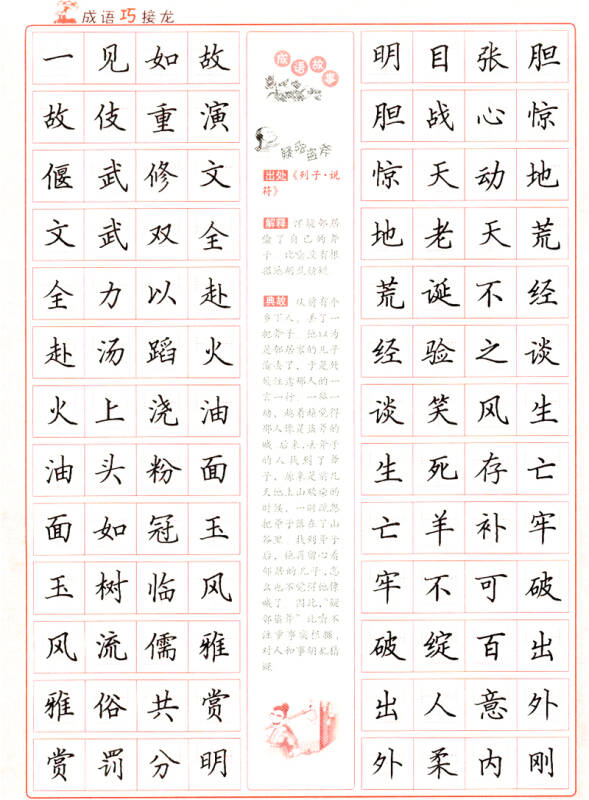 成语巧接龙
一见如故
故伎重演
偃武修文
文武双全
全力以赴
赴汤蹈火
火上浇油
油头粉面
面如冠玉
玉树临风
风流儒雅
雅俗共赏
赏罚分明
成语故事
疑邻盗斧
出处《列子·说
符》
解释 怀疑邻居
偷了自己的斧
子。比喻没有根
据地胡乱猜疑。
典故 从前有个
乡下人，丢了一
把斧子。他以为
是邻居家的儿子
偷去了，于是处
处注意那人的一
言一行、一举一
动，越看越觉得
那人像是盗斧的
贼。后来，丢斧子
的人找到了斧
子，原来是前几
天他上山砍柴的
时候，一时疏忽
把斧子落在了山
谷里。找到斧子
后，他再留心看
邻居的儿子，怎
么也不觉得他像
贼了。因此，“疑
邻盗斧”比喻不
注重事实根据，
对人和事胡乱猜
疑。
明目张胆
胆战心惊
惊天动地
地老天荒
荒诞不经
经验之谈
谈笑风生
生死存亡
亡羊补牢
牢不可破
破绽百出
出人意外
外柔内刚